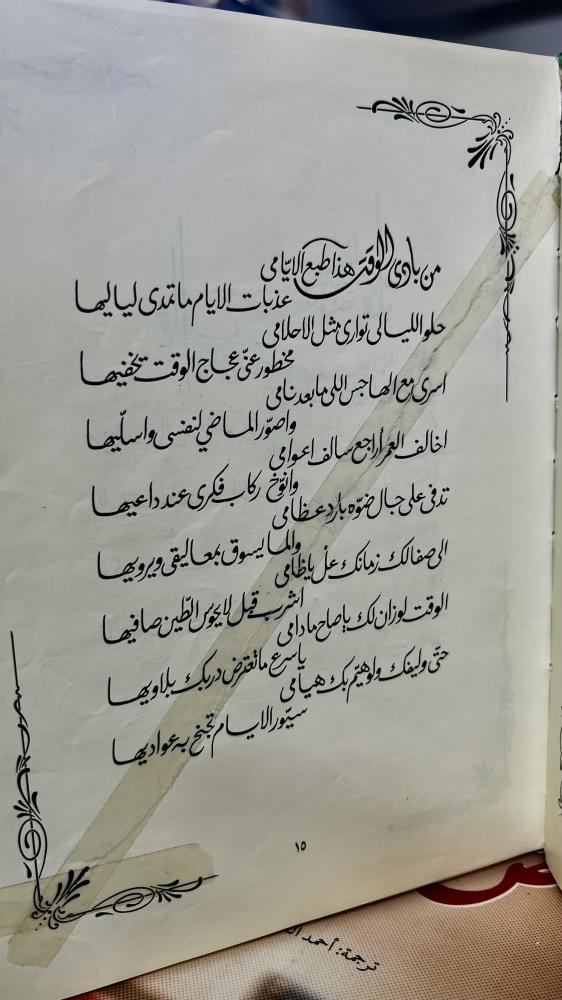 من بادي الوقت هذا طبع الايّامي
عذبات الايام ماتمدى لياليها
حلو الليالي توارى مثل الاحلامي
مخطور عنّي عجاج الوقت يخفيها
اسرى مع الهاجس اللي مابعد نامي
واصوّر الماضي لنفسي واسلّيها
اخالف العمر أراجع سالف اعوامي
وانوّخ ركاب فكري عند داعيها
تدفى على جال ضوّه بارد عظامي
والما يسوق بمعاليقي ويرويها
الى صفالك زمانك علّ ياظامي
اشرب قبل لايحوس الطّين صافيها
الوقت لوزان لك ياصاح مادامي
ياسرع ماتعترض دربك بلاويها
حتّى وليفك ولو هيّم بك هيامي
سيّور الايام تجنح به عواديها
١٥
ترجمة: أحمد